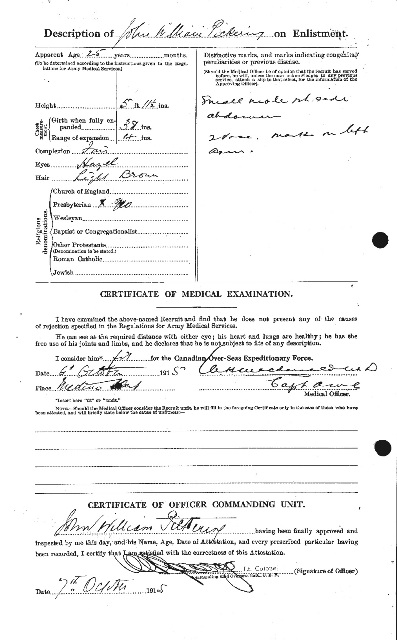 Description of John William Pickering on Enlistment.
Apparent Age 25 years months.
(To be determined according to the instructions given in the Regulations for Army Medical Services.)
Distinctive marks, and marks indicating congenital peculiarities or previous disease.
(Should the Medical Officer be of opinion that the recruit has served before, he will, unless the man acknowledges to any previous service, attach a slip to that effect, for the information of the Approving Officer).
Height 5 ft. 11½ ins.
Chest measurement
Girth when fully expanded 38 ins.
Range of expansion 4 ins.
Complexion Fair
Eyes Hazel
Hair Light Brown
Small mole rt side
abdomen
2 vacc. marks on left
arm.
Religious denominations.
Church of England
Presbyterian X Yes
Wesleyan
Baptist or Congregationalist
Other Protestants
(Denomination to be stated.)
Roman Catholic
Jewish
CERTIFICATE OF MEDICAL EXAMINATION.
I have examined the above-named Recruit and find that he does not present any of the causes
of rejection specified in the Regulations for Army Medical Services.
He can see at the required distance with either eye; his heart and lungs are healthy; he has the
free use of his joints and limbs, and he declares that he is not subject to fits of any description.
I consider him* fit for the Canadian Over-Seas Expeditionary Force.
Date 6th October 1915
Place Medicine Hat
Capt A.M.C
Medical Officer.
*Insert here "fit" or "unfit."
NOTE. Should the Medical Officer consider the Recruit unfit, he will fill in the foregoing Certificate only in the case of those who have
been attested, and will briefly state below the cause of unfitness:—
CERTIFICATE OF OFFICER COMMANDING UNIT.
John William Pickering having been finally approved and
inspected by me this day, and his Name, Age, Date of Attestation, and every prescribed particular having
been recorded, I certify that I am satisfied with the correctness of this Attestation.
Lt. Colonel (Signature of Officer)
Date 7th October 1915